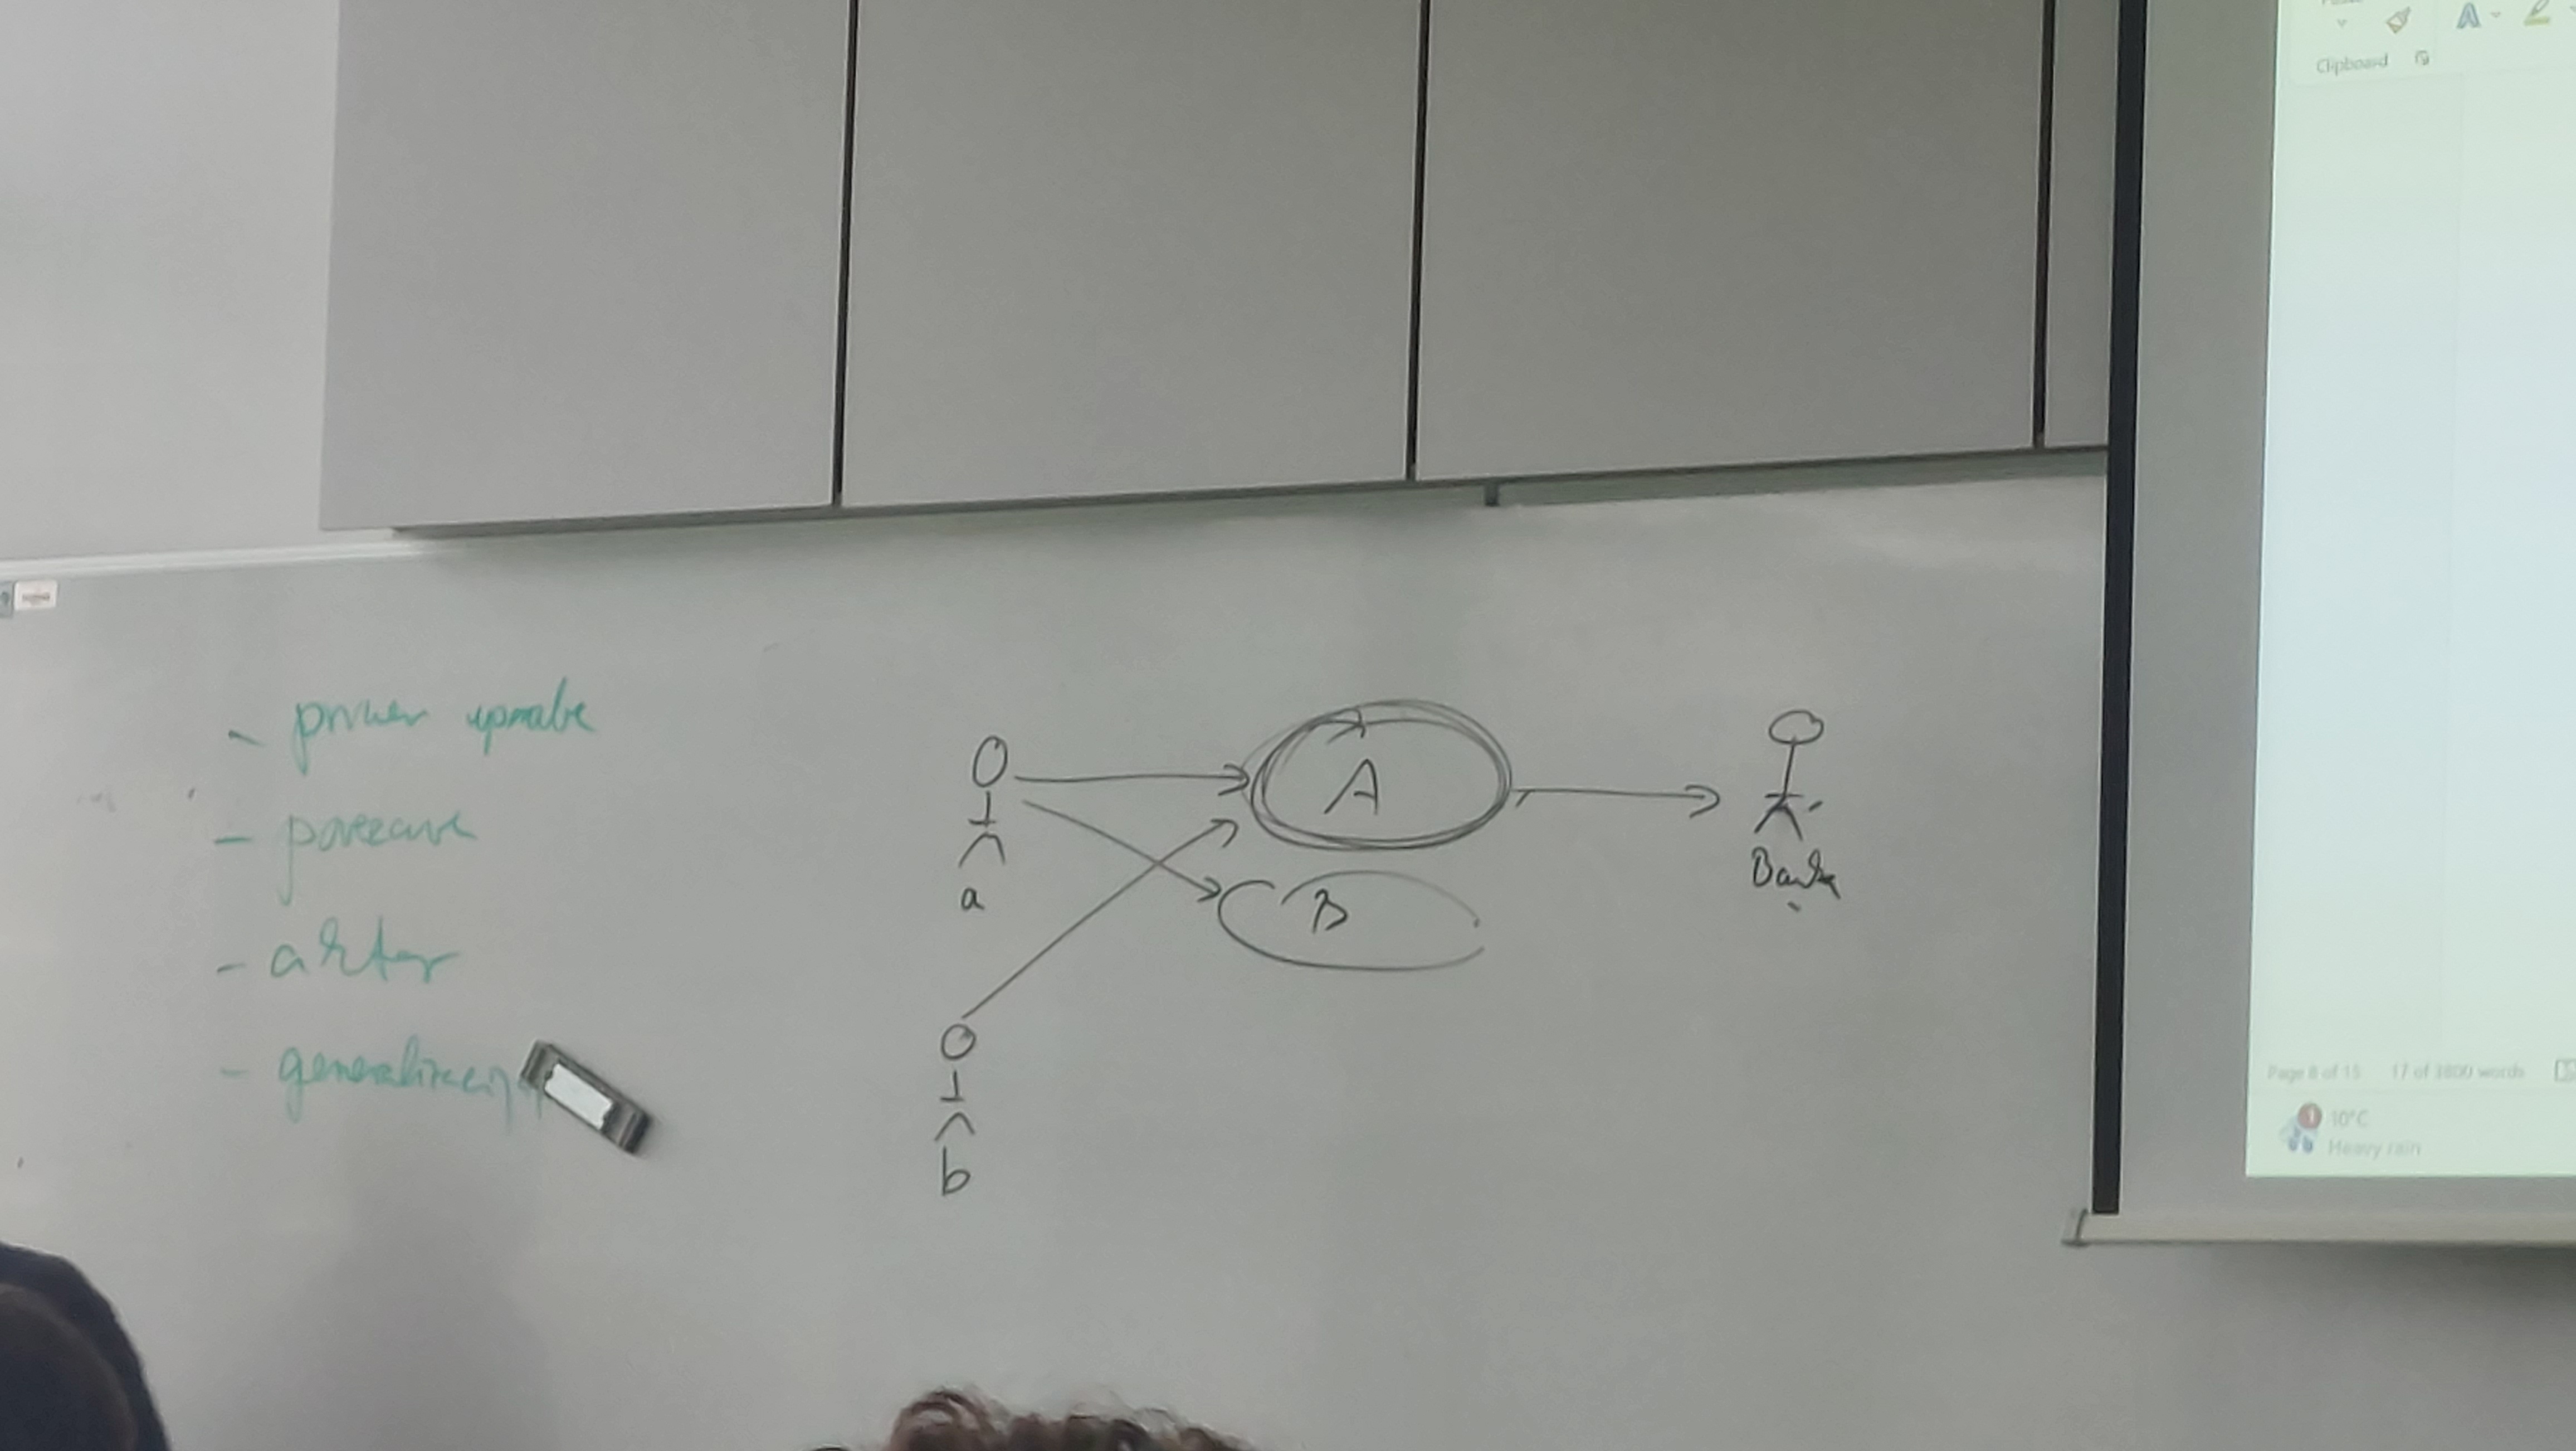 - primer uporabe
- povezave
- akter
- generalizacija
a
A
B
b
Banka
Clipboard
Page 8 of 15 17 of 3800 words
1
10°C
Heavy rain